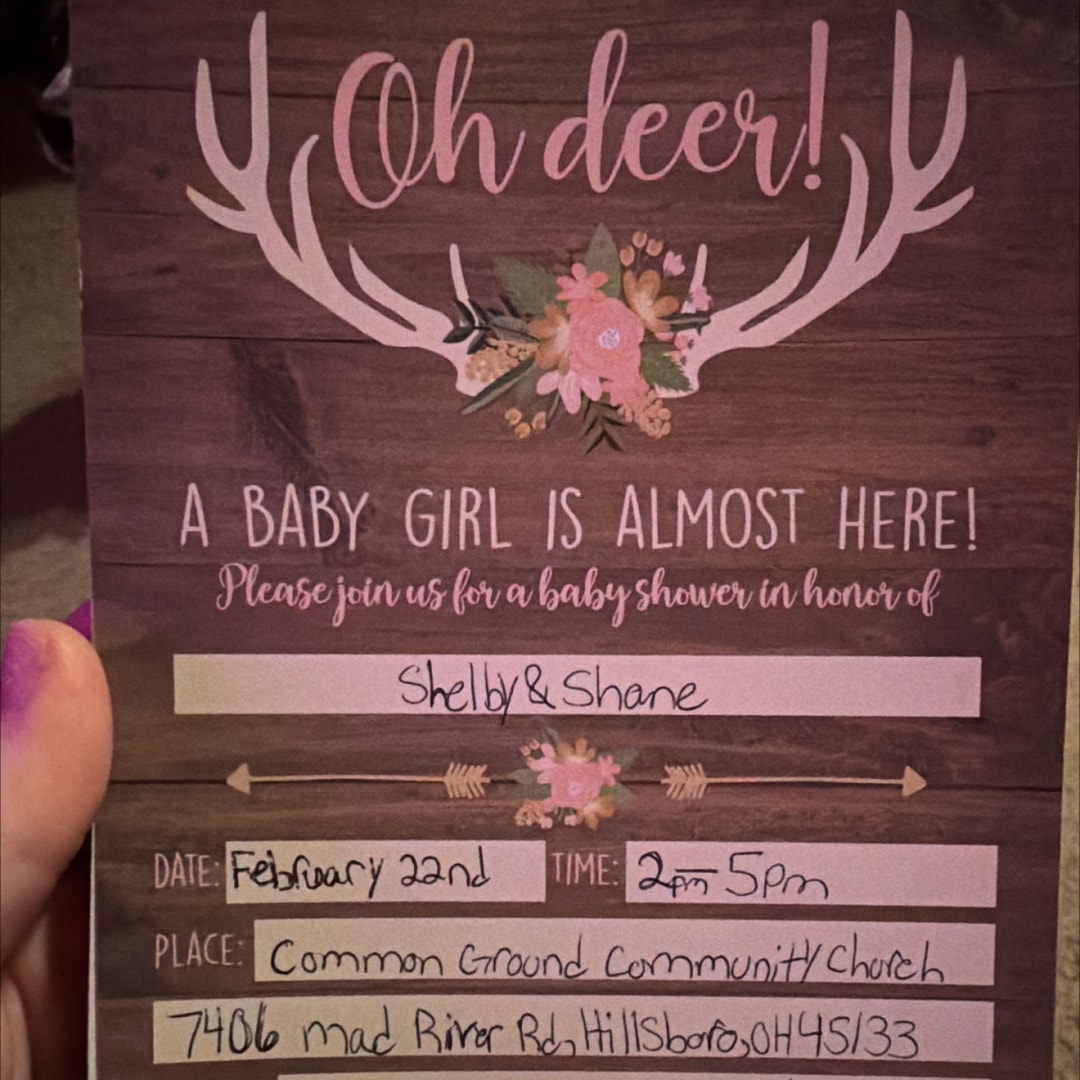 Oh deer!
A BABY GIRL IS ALMOST HERE!
Please join us for a baby shower in honor of
Shelby & Shane
DATE: February 22nd TIME: 2pm - 5pm
PLACE: Common Ground Community Church
7406 mad River Rd, Hillsboro, OH 45133